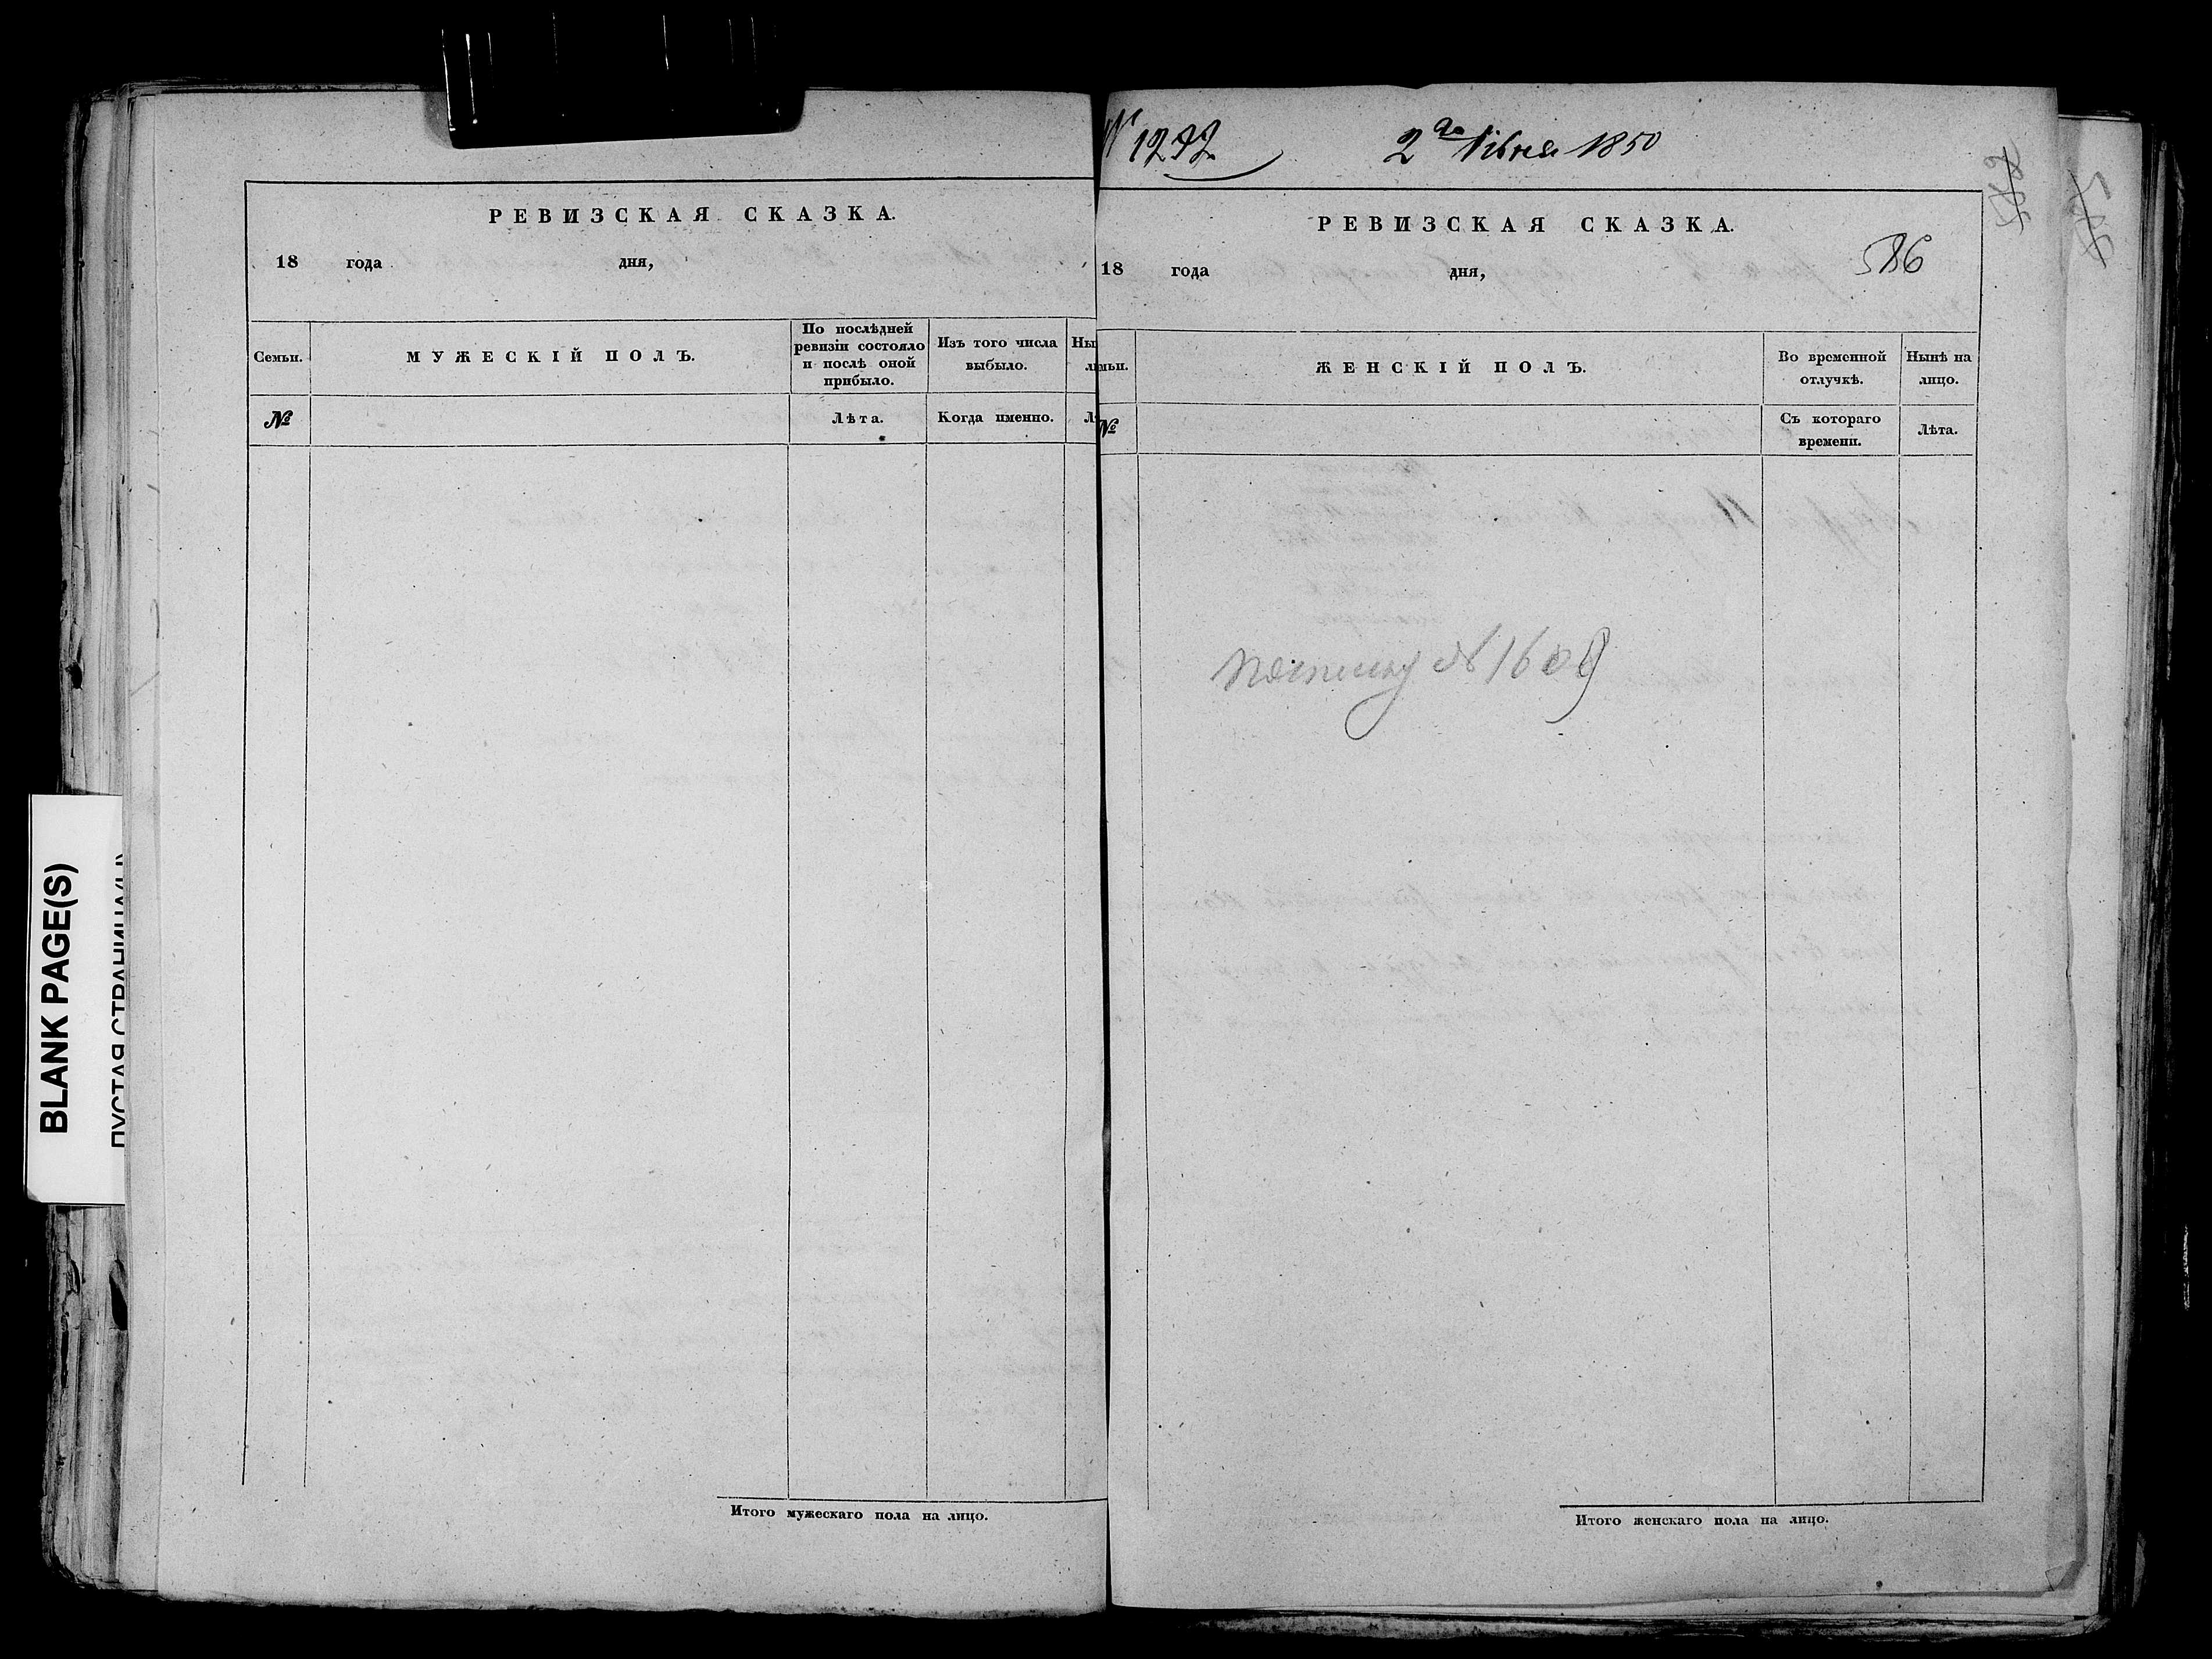 BLANK PAGE(S)
РЕВИЗСКАЯ СКАЗКА.
18 года дня,
Семьи.
МУЖЕСКІЙ ПОЛЪ.
По послѣдней
ревизіи состояло
и послѣ оной
прибыло.
Изъ того числа
выбыло.
№
Лѣта.
Когда именно.
Итого мужескаго пола на лицо.
2го Іюня 1850
РЕВИЗСКАЯ СКАЗКА.
586
18 года дня,
ЖЕНСКІЙ ПОЛЪ.
Во временной
отлучкѣ.
Нынѣ на
лицо.
№
Съ котораго
времени.
Лѣта.
№ 1608
Итого женскаго пола на лицо.